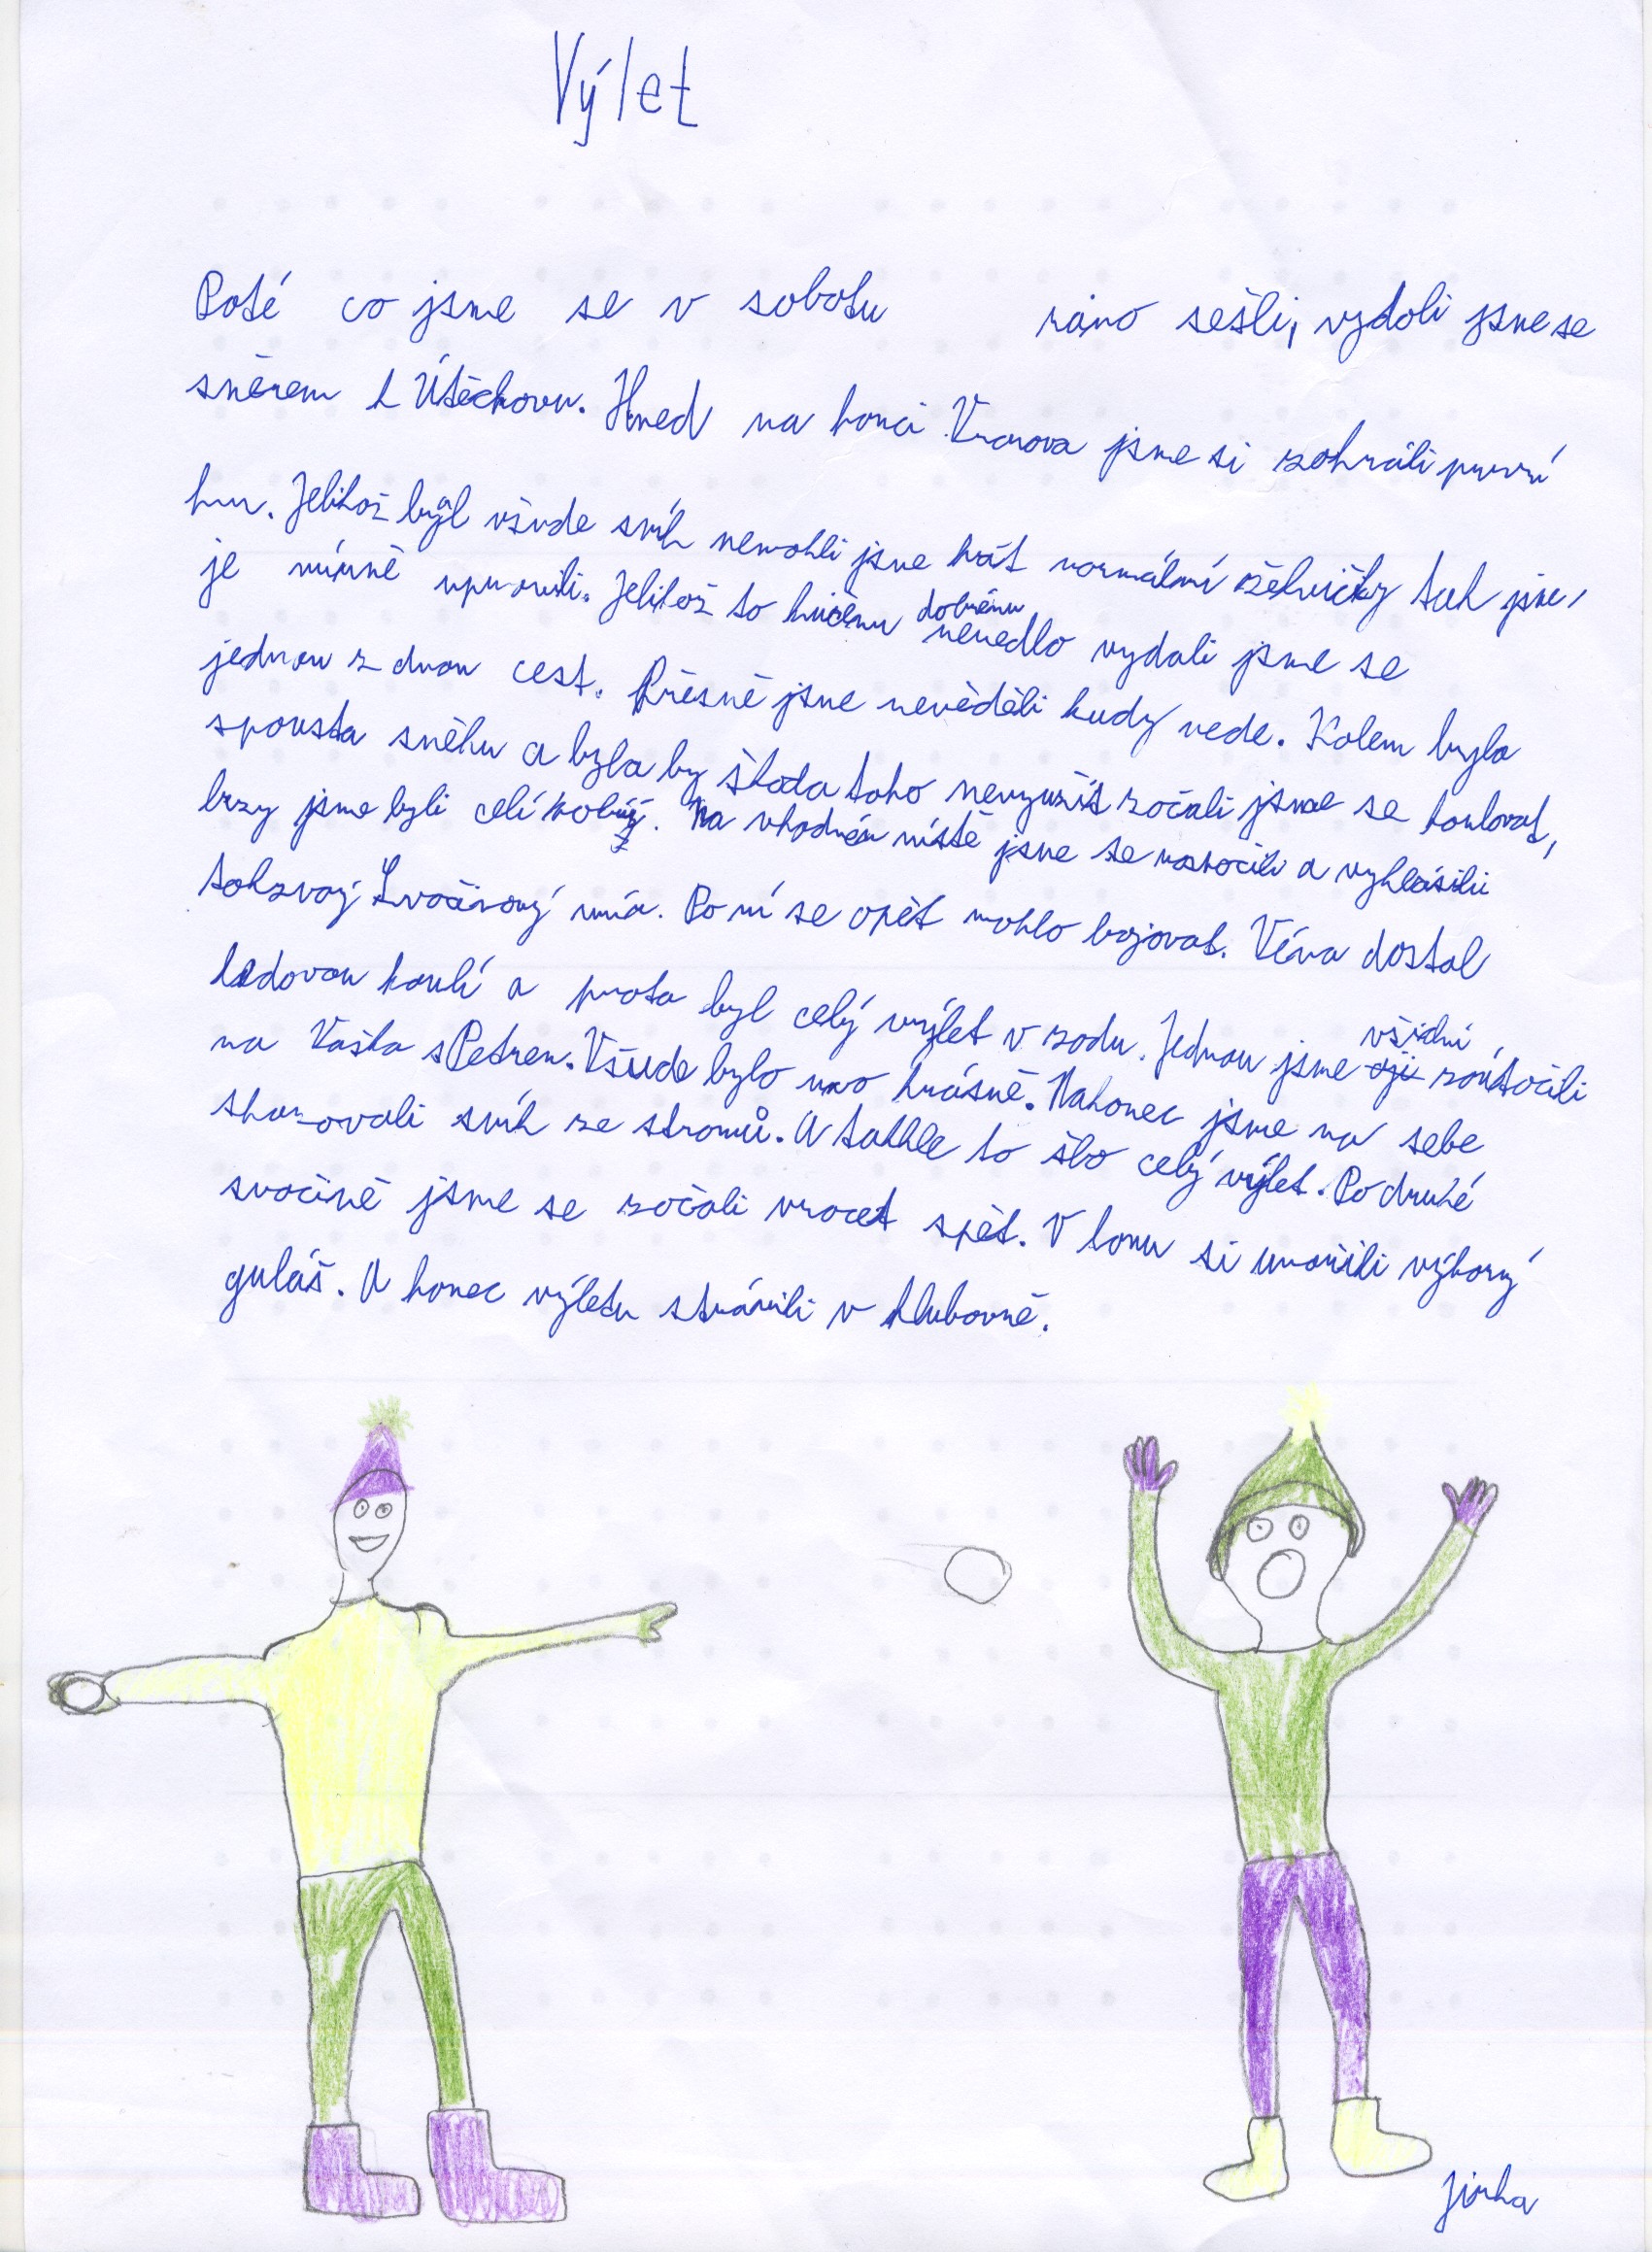 Výlet
Poté co jsme se v sobotu ráno sešli, vydali jsme se
směrem k Útěchovu. Hned na konci Vranova jsme si zahráli první
hru. Jelikož byl všude sníh nemohli jsme hrát normální želvičky tak jsme
je mírně upravili. Jelikož to k ničemu dobrému nevedlo vydali jsme se
jednou z dvou cest. Přesně jsme nevěděli kudy vede. Kolem byla
spousta sněhu a byla by škoda toho nevyužít začali jsme se koulovat,
brzy jsme byli celí . Na vhodném místě jsme se a vyhlásili
takzvaný Svačinový mír. Po ní se opět mohlo bojovat. Véna dostal
ledovou koulí a proto byl celý výlet v zadu. Jednou jsme všichni zaútočili
na Vaška s Petrem. Všude bylo moc krásně. Nakonec jsme na sebe
shazovali sníh ze stromů. A takhle to šlo celý výlet. Po druhé
svačině jsme se začali vracet spět. V lomu si uvařili výborný
guláš. A konec výletu strávili v klubovně.
Jirka